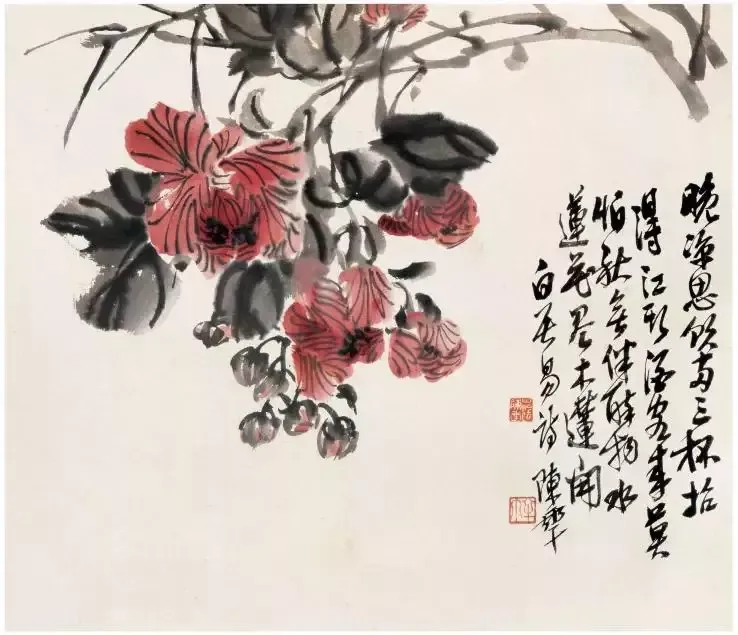 晚涼思飲両三杯招
得江頭酒客來莫
怕秋無伴醉物水
蓮花盡木蓮開
白居易詩 陳